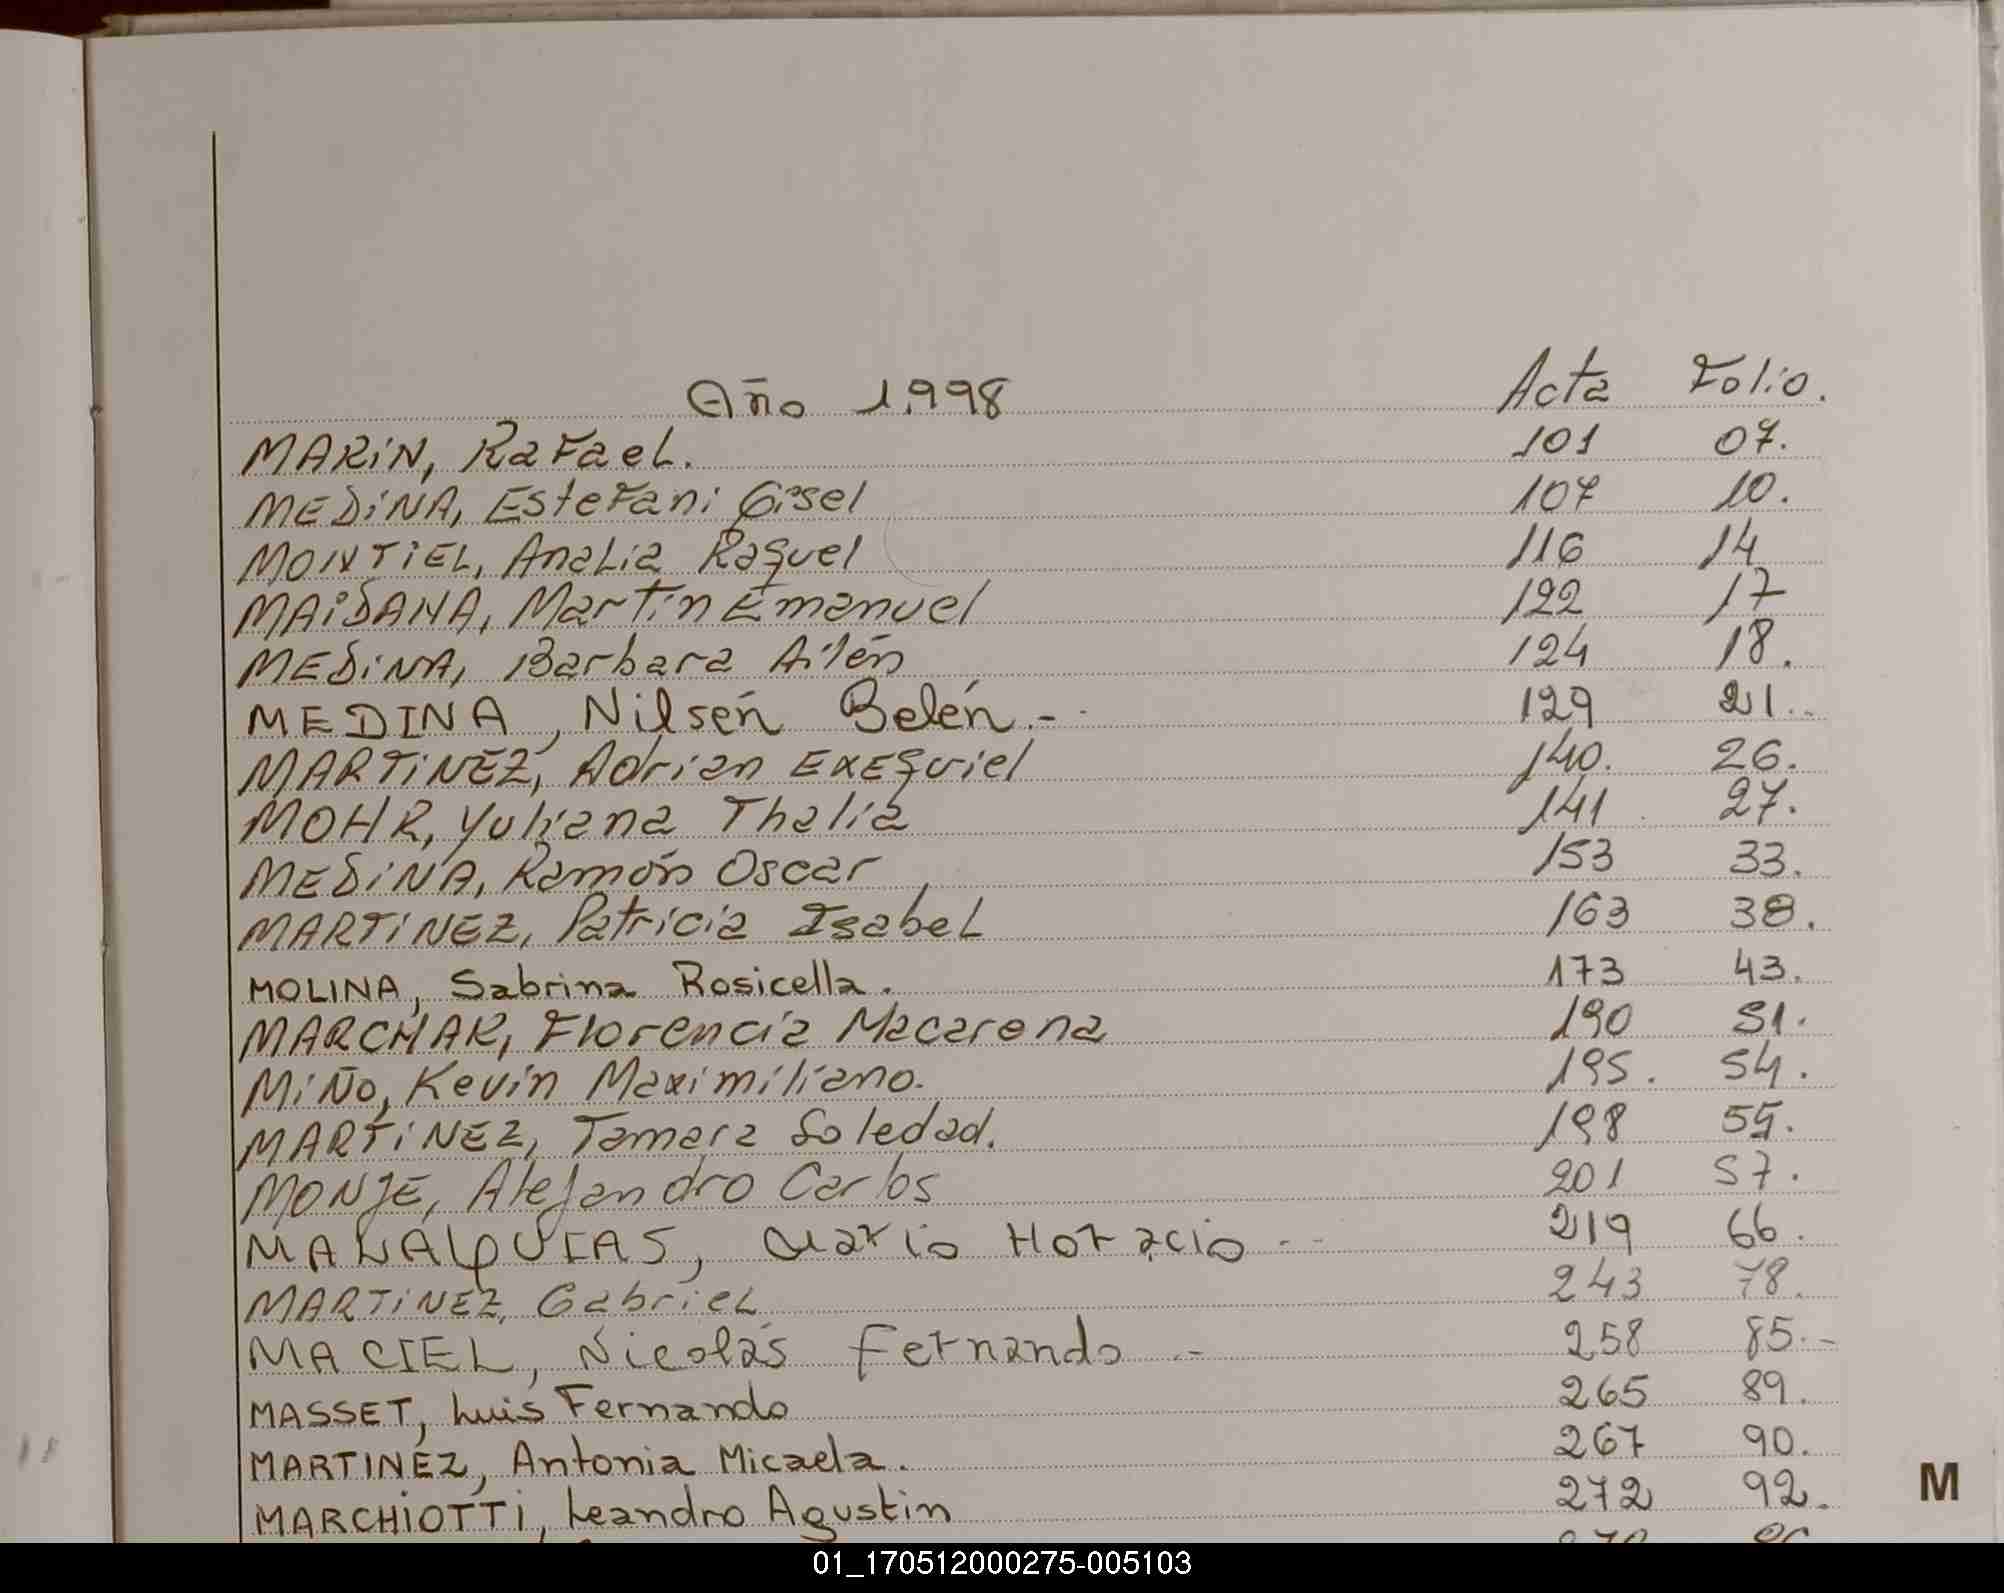 Año 1.998 Acta Folio.
MARiN, RaFaeL. 101 07.
MEDiNA, EsteFani Gisel 107 10.
MONTiEL, AnaLia Raquel 116 14
MAiDANA, Martín Emanuel 122 17
MEDiNA, Barbara Ailén 124 18.
MEDINA, Nilsén Belén.- 129 21..
MARTiNEZ, Adrian EXEquiel 140. 26.
MOHR, Yuliana Thalia 141 27.
MEDiNA, Ramón Oscar 153 33.
MARTiNEZ, Patricia IsabeL 163 38.
MOLINA, Sabrina Rosicella. 173 43.
MARCHAR, Florencia Macarena 190 51.
MiÑo, Kevin Maximiliano. 195. 54.
MARTiNEZ, Tamara Soledad. 198 55.
MONJE, Alejandro Carlos 201 57.
MANALQUIAS, Mario Horacio -- 219 66.
MARTiNEZ, GabrieL 243 78.
MACIEL, Nicolás Fernando -- 258 85.-
MASSET, Luis Fernando 265 89.
MARTINEZ, Antonia Micaela. 267 90.
MARCHiOTTi, Leandro Agustin 272 92.
M
01_170512000275-005103